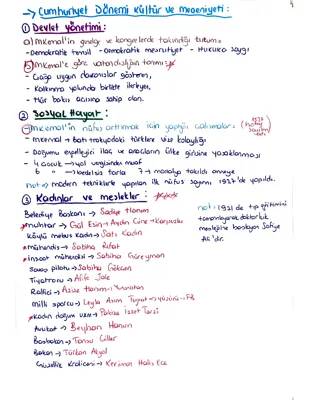 → Cumhuriyet Dönemi Kültür ve Medeniyeti:
① Devlet yönetimi:
a) M.Kemal'in genelge ve kongrelerde takındığı tutum:
-Demokratik temsil -Demokratik meşrutiyet - Hukuka saygı
b) M.Kemal'e göre vatandaşlığın tanımı:
- Çağa uygun davranışlar gösteren,
- Kalkınma yolunda birlikte ilerleyen,
- Hür bakış açısına sahip olan.
② Sosyal Hayat:
M.Kemal'in nüfus arttırmak için yaptığı çalışmalar:
1927
- Mernval → Batı trakyadaki türklere vize kolaylığı
- Doğumu engelleyici ilaç ve aracların ülke girişine yasaklanması
- 4 çocuk → yol vergisinden muaf
6 " → bedelsiz tarla 7 → madalya takıldı anneye
not ⇒ modern tekniklerle yapılan ilk nüfus sayımı, 1927'de yapıldı.
③ Kadınlar ve meslekler:
Belediye Başkanı → Sadiye Hanım
muhtar → Gül Esin → Aydın Çine → Karpuzlu
Köylü mebus kadın → Satı Kadın
mühendis → Sabiha Rıfat
inşaat mühendisi → Sabiha Güreyman
Savaş pilotu → Sabiha Gökçen
Tiyatrocu → Afife Jale
Rallici → Azize Hanım →
milli sporcu → Leyla Asım Turgut → yüzücü → FB
kadın doğum uzm → Pakize İzzet Tarzi
Avukat → Beyhan Hanım
Başbakan → Tansu Çiller
Bakan → Türkan Akyol
Güzellik Kraliçesi → Keriman Halis Ece
not: 1931 de tıp eğitimini
tamamlayarak doktorluk
mesleğine başlayan Safiye
Ali'dir.